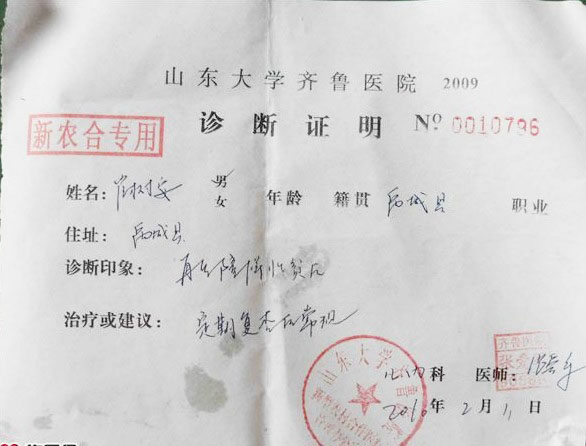 山东大学齐鲁医院 2009
诊断证明 Nº 0010796
新农合专用
姓名: 男 女 年龄 籍贯 禹城县 职业
住址: 禹城县
诊断印象: 再生障碍性贫血
治疗或建议: 定期复查血常规
山东大学齐鲁医院
科 医师:
2010年2月11日